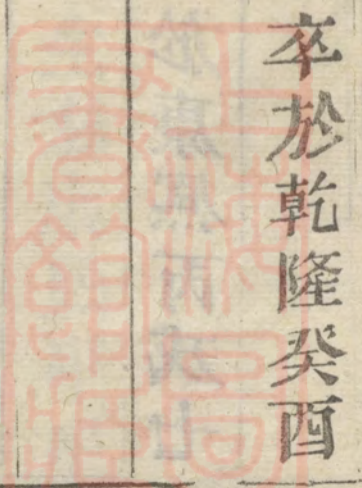 卒於乾隆癸酉
上海圖
書館藏